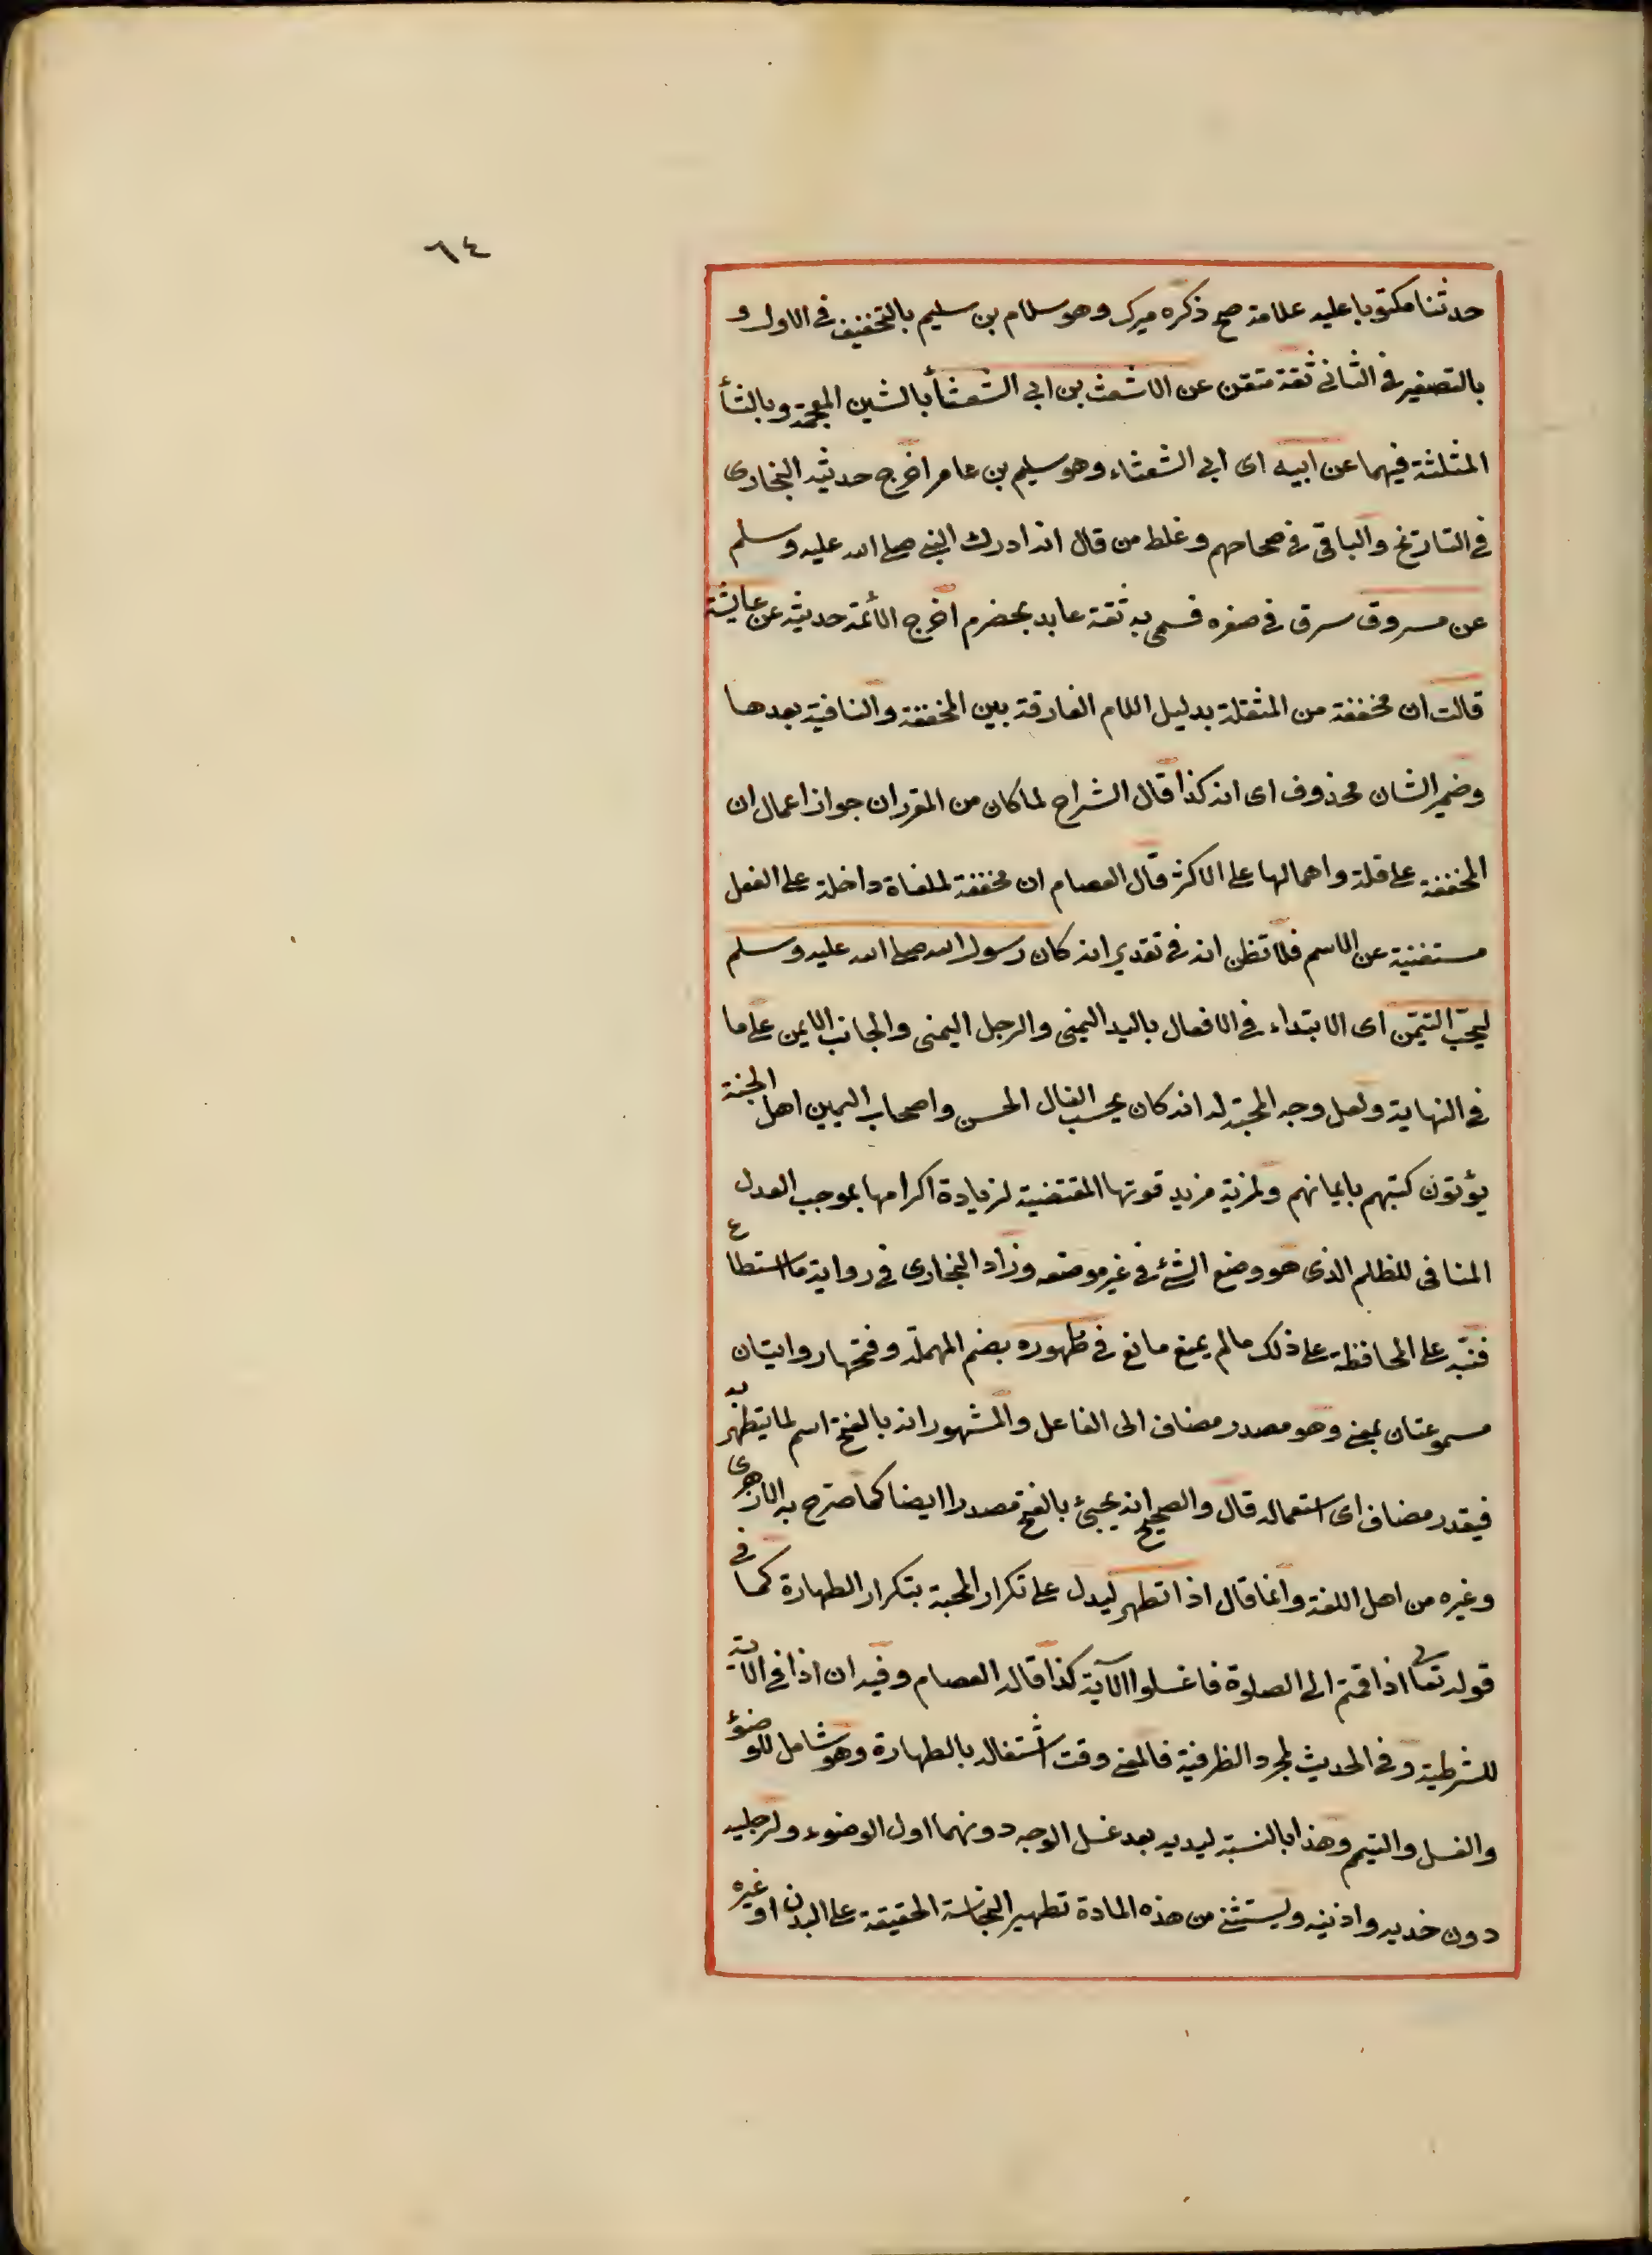 ٦٤
حدثنا مكتوبا عليه علامة صح ذكره ميرك وهو سلام بن سليم بالتخفيف في الاول و
بالتصغير في الثاني ثقة متقن عن الاشعث بن ابي الشعثأ بالشين المعجمة وبالثأ
المثلثة فيهما عن ابيه اى ابي الشعثاء وهو سليم بن عامر اخرج حديثه البخارى
في التاريخ والباقي في صحاحهم وغلط من قال انه ادرك النبي صلى الله عليه وسلم
عن مسروق سرق في صغره فسمى به ثقة عابد مخضرم اخرج الأئمة حديثه عن عايشة
قالت ان مخففة من المثقلة بدليل اللام الفارقة بين المخففة والنافية بعدها
وضمير الشان محذوف اى انه كذا قال الشراح لما كان من المقرر ان جواز اعمال ان
المخففة على قلة واهمالها على الاكثر قال العصام ان مخففة لملغاة داخلة على الفعل
مستغنية عن الاسم فلا تظن انه في تقدير انه كان رسول الله صلى الله عليه وسلم
ليحبّ التيمّن اى الابتداء في الافعال باليد اليمنى والرجل اليمنى والجانب الايمن على ما
في النهاية ولعل وجه المحبة له انه كان يحب الفال الحسن واصحاب اليمين اهل الجنة
يؤتون كتبهم بايمانهم ولمزية مزيد قوتها المقتضية لزيادة اكرامها بموجب العدل
المنافي للظلم الذى هو وضع الشئ في غير موضعه وزاد البخارى في رواية ما استطاع
فنبّه على المحافظة على ذلك ما لم يمنع مانع في طهوره بضم المهملة وفتحها روايتان
مسموعتان بمعنى وهو مصدر مضاف الى الفاعل والمشهور انه بالفتح اسم لما يتطهر به
فيقدر مضاف اى استعماله قال والصحيح انه يجيئ بالفتح مصدرا ايضا كما صرح به الازهرى
وغيره من اهل اللغة وانما قال اذا تطهر ليدل على تكرار المحبة بتكرار الطهارة كما في
قوله تعالى اذا قمتم الى الصلوة فاغسلوا الآية كذا قاله العصام وفيه ان اذا في الآية
للشرطية وفي الحديث لمجرد الظرفية فالمعنى وقت اشتغاله بالطهارة وهو شامل للوضوء
والغسل والتيمم وهذا بالنسبة ليديه بعد غسل الوجه دونهما اول الوضوء ولرجليه
دون خديه واذنيه ويستثنى من هذه المادة تطهير النجاسة الحقيقة على البدن او غيره